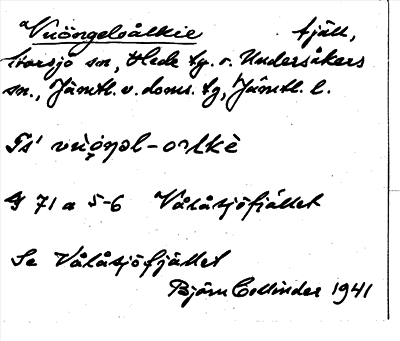 Vuöngeloålkie fjäll,
Storsjö sn, Hede tg. o. Undersåkers
sn., Jämtl. v. doms. tg, Jämtl. l.
Fs'
G 71 a 5-6 Vålåsjöfjället
Se Vålåsjöfjället
Björn Collinder 1941